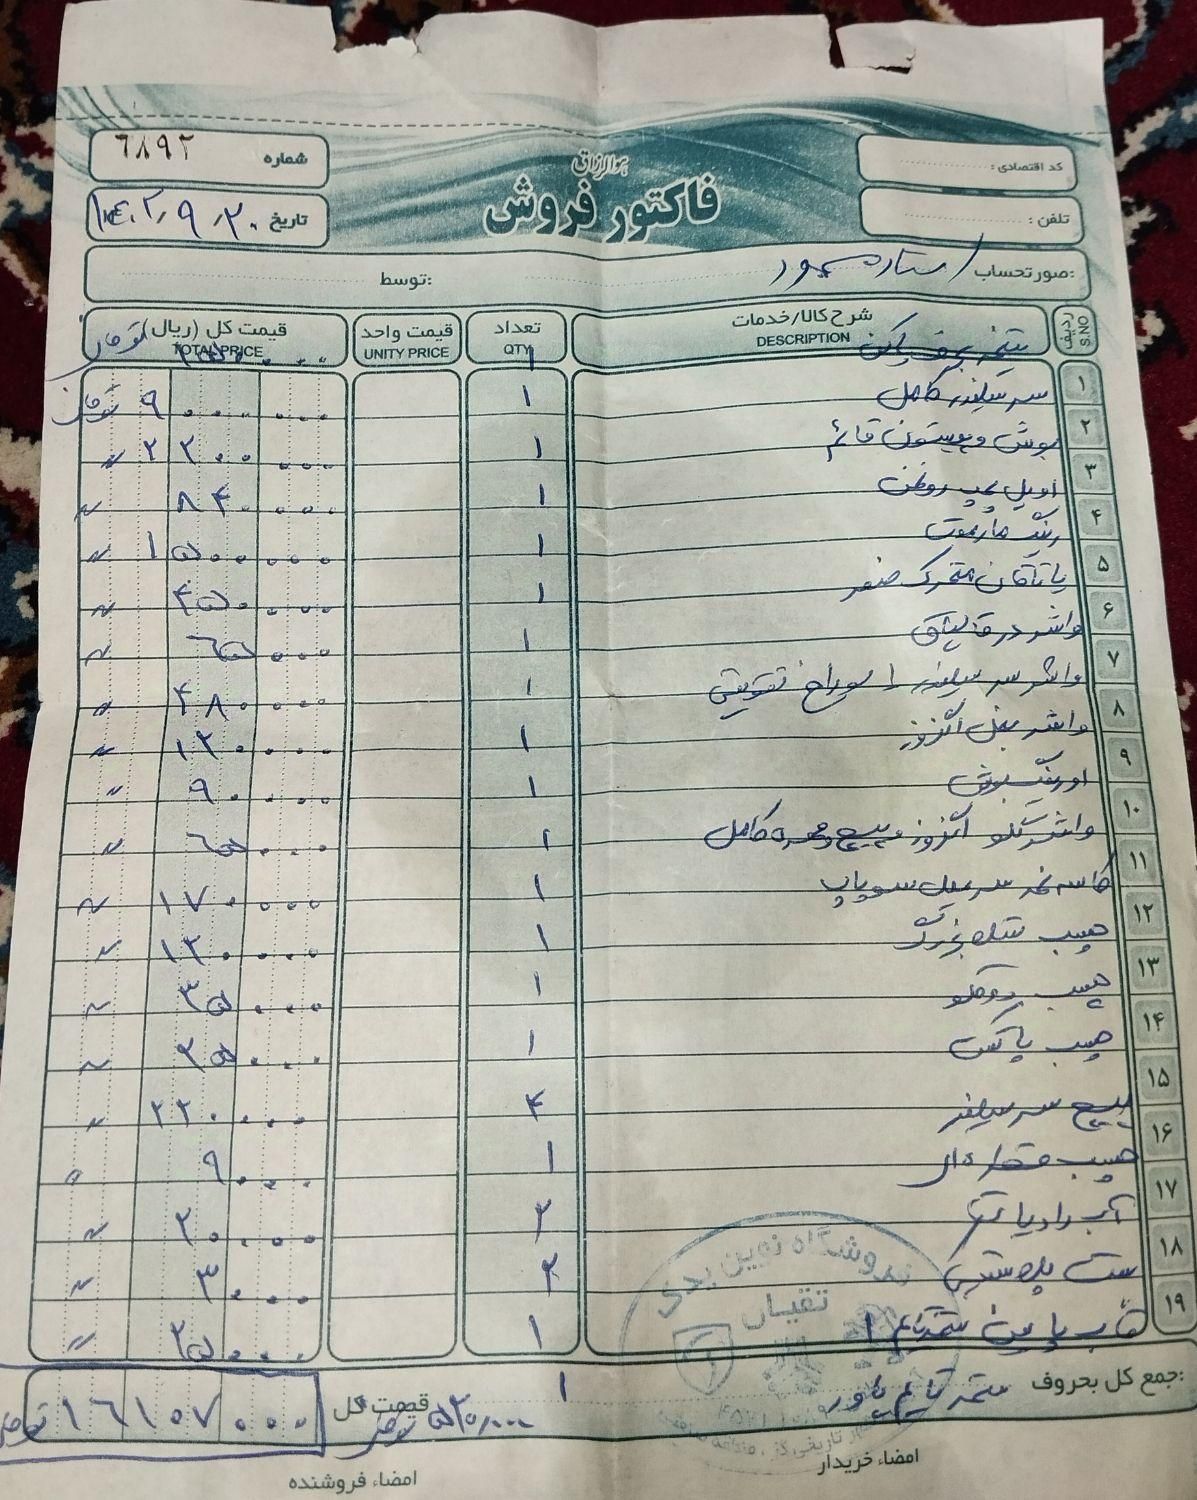 هوالرزاق
فاکتور فروش
کد اقتصادی :
شماره ۶۸۹۲
تلفن :
تاریخ ۱۴۰۲٫۹٫۲۰
صورتحساب:
توسط:
ردیف S.NO
شرح کالا/خدمات DESCRIPTION
تعداد QTY
قیمت واحد UNITY PRICE
قیمت کل (ریال) TOTAL PRICE
۱ سرسیلندر کامل ۱ ۹۰۰۰۰۰۰ تومان
۲ بوش و پیستون قائم ۱ ۲۲۰۰۰۰۰〃
۳ اویل پمپ روغن ۱ ۸۴۰۰۰۰ 〃
۴ رینگ ۱ ۱۵۰۰۰۰۰ 〃
۵ یاتاقان متحرک صفر ۱ ۴۵۰۰۰۰ 〃
۶ واشر درقالپاق ۱ ۶۵۰۰۰ 〃
۷ واشر سرسیلندر ۱ سوراخ تقویتی ۱ ۴۸۰۰۰۰ 〃
۸ واشر بغل اگزوز ۱ ۱۲۰۰۰۰ 〃
۹ اورینگ بوش ۱ ۹۰۰۰۰ 〃
۱۰ واشر گلو اگزوز و پیچ و مهره کامل ۱ ۶۵۰۰۰ 〃
۱۱ کاسه نمد سرمیل سوپاپ ۱ ۱۷۰۰۰۰ 〃
۱۲ چسب بزرگ ۱ ۱۲۰۰۰۰ 〃
۱۳ چسب ۱ ۳۵۰۰۰ 〃
۱۴ چسب ۱ ۲۵۰۰۰ 〃
۱۵ پیچ سرسیلندر ۴ ۲۲۰۰۰۰ 〃
۱۶ چسب قطره ای ۱ ۹۰۰۰ 〃
۱۷ آب رادیاتور ۲ ۲۰۰۰۰
۱۸ بست پلاستیکی ۲ ۳۰۰۰ 〃
۱۹ قاب پایین تسمه تایم ۱ ۱ ۲۵۰۰۰ 〃
فروشگاه نوین یدک
تقیان
جمع کل بحروف:
تسمه تایم پاور ۱ ۵۲۰٫۰۰۰ تومان
قیمت کل
۱۶۱۰۷۰۰۰ تومان
امضاء خریدار
امضاء فروشنده